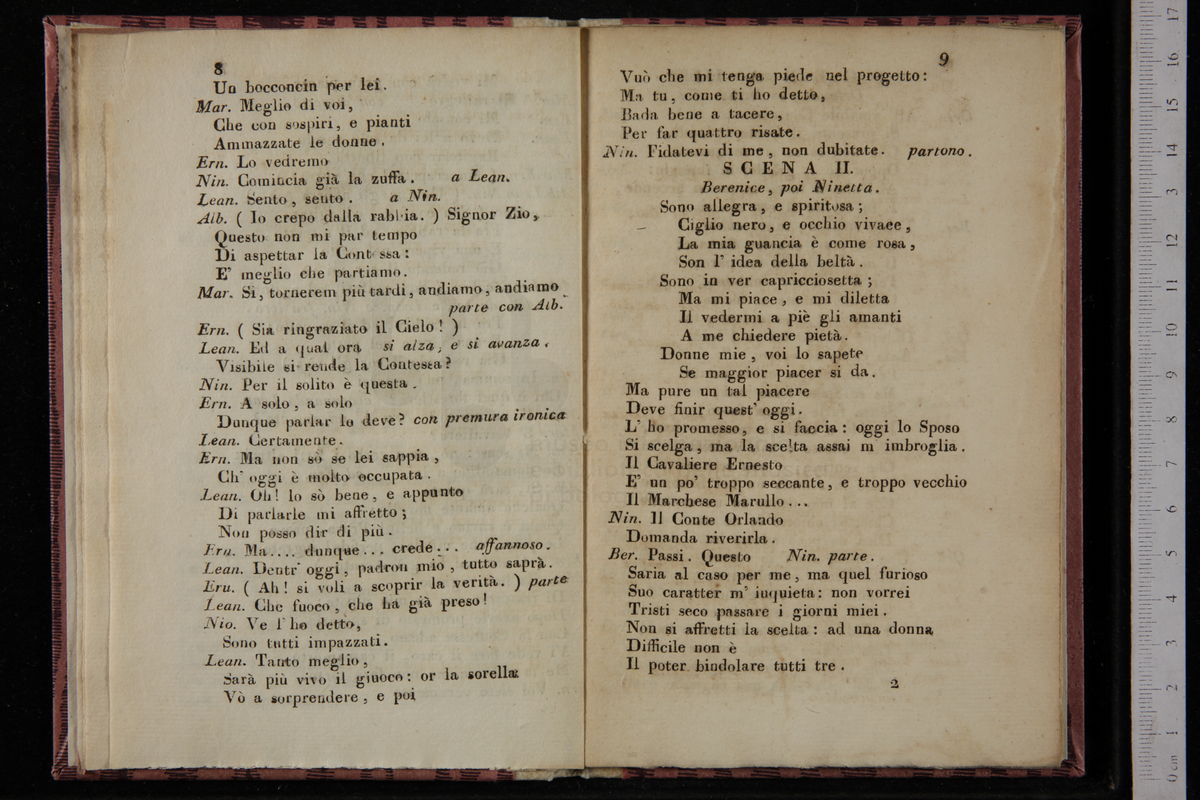 8
Un bocconcin per lei.
Mar. Meglio di voi,
Che con sospiri, e pianti
Ammazzate le donne.
Ern. Lo vedremo
Nin. Comincia già la zuffa. a Lean.
Lean. Sento, sento. a Nin.
Alb. ( Io crepo dalla rabbia. ) Signor Zio,
Questo non mi par tempo
Di aspettar la Contessa:
E' meglio che partiamo.
Mar. Si, tornerem più tardi, andiamo, andiamo
parte con Alb.
Ern. ( Sia ringraziato il Cielo! )
Lean. Ed a qual ora si alza, e si avanza.
Visibile si rende la Contessa?
Nin. Per il solito è questa.
Ern. A solo, a solo
Dunque parlar le deve? con premura ironica
Lean. Certamente.
Ern. Ma non sò se lei sappia,
Ch' oggi è molto occupata.
Lean. Oh! lo sò bene, e appunto
Di parlarle mi affretto;
Non posso dir di più.
Ern. Ma.... dunque... crede... affannoso.
Lean. Dentr' oggi, padron mio, tutto saprà.
Ern. ( Ah! si voli a scoprir la verità. ) parte
Lean. Che fuoco, che ha già preso!
Nin. Ve l' ho detto,
Sono tutti impazzati.
Lean. Tanto meglio,
Sarà più vivo il giuoco: or la sorella
Vò a sorprendere, e poi
9
Vuò che mi tenga piede nel progetto:
Ma tu, come ti ho detto,
Bada bene a tacere,
Per far quattro risate.
Nin. Fidatevi di me, non dubitate. partono.
SCENA II.
Berenice, poi Ninetta.
Sono allegra, e spiritosa;
Ciglio nero, e occhio vivace,
La mia guancia è come rosa,
Son l' idea della beltà.
Sono in ver capricciosetta;
Ma mi piace, e mi diletta
Il vedermi a piè gli amanti
A me chiedere pietà.
Donne mie, voi lo sapete
Se maggior piacer si da.
Ma pure un tal piacere
Deve finir quest' oggi.
L' ho promesso, e si faccia: oggi lo Sposo
Si scelga, ma la scelta assai m imbroglia.
Il Cavaliere Ernesto
E' un po' troppo seccante, e troppo vecchio
Il Marchese Marullo...
Nin. Il Conte Orlando
Domanda riverirla.
Ber. Passi. Questo Nin. parte.
Saria al caso per me, ma quel furioso
Suo caratter m' inquieta: non vorrei
Tristi seco passare i giorni miei.
Non si affretti la scelta: ad una donna
Difficile non è
Il poter bindolare tutti tre.
2
0 cm 1 2 3 4 5 6 7 8 9 10 11 12 13 14 15 16 17